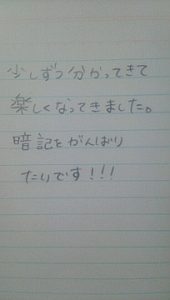 少しずつ分かってきて
楽しくなってきました。
暗記をがんばり
たいです!!!